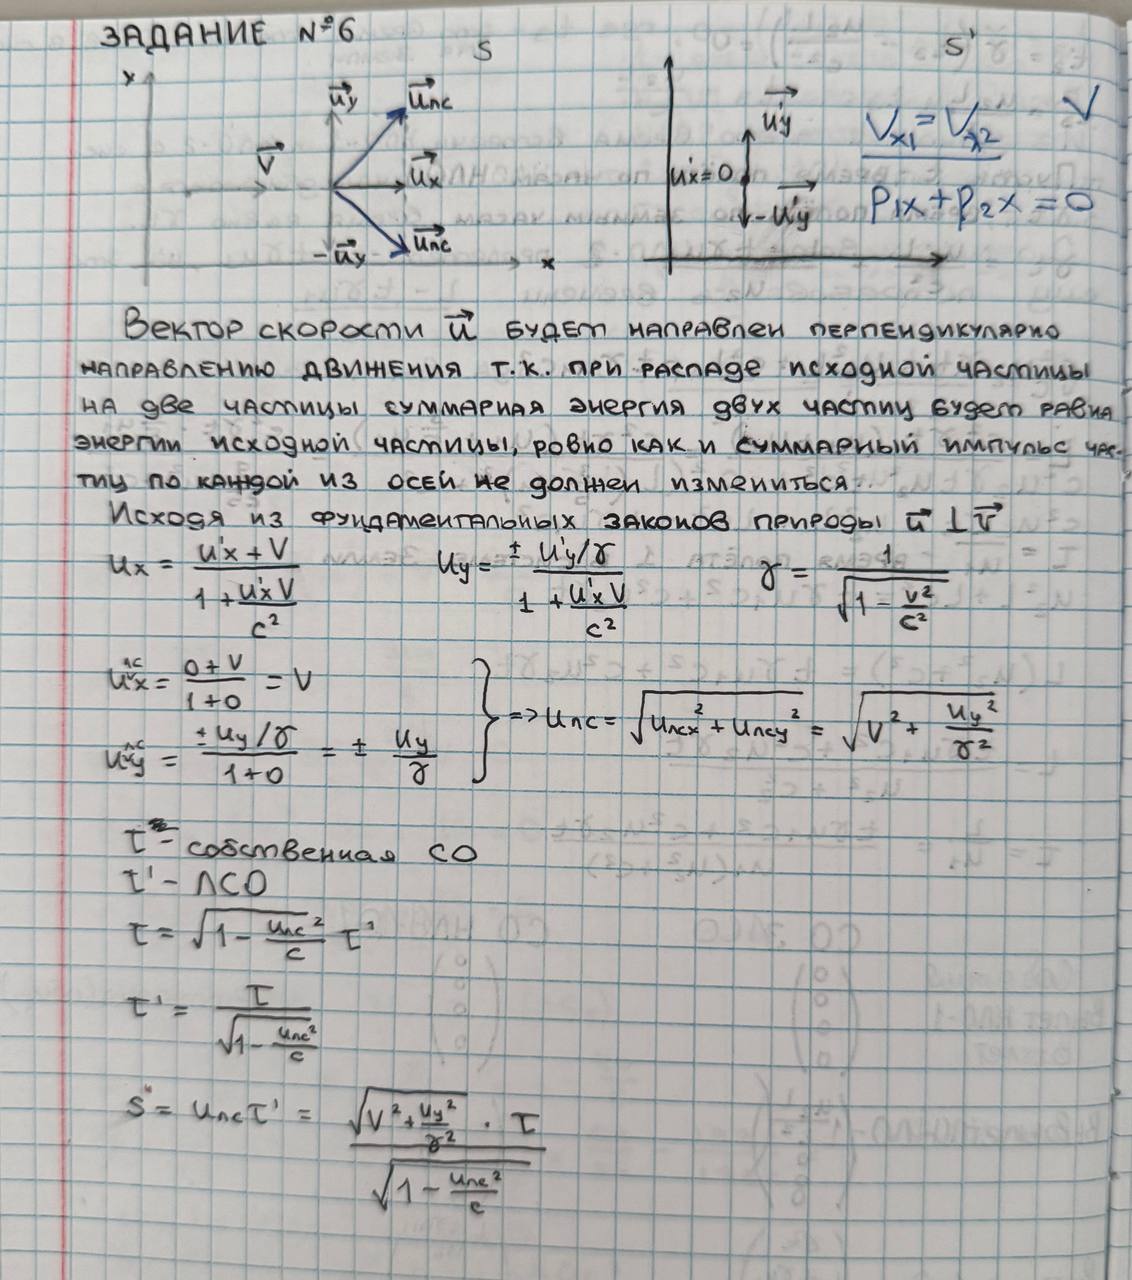 ЗАДАНИЕ №6
S
S'
x
u⃗y
u⃗лс
V⃗
u⃗x
-u⃗y
u⃗лс
x
u⃗'y
u'x=0
-u⃗'y
Vx1 = Vx2
V
p1x + p2x = 0
Вектор скорости u⃗ будет направлен перпендикулярно
направлению движения т.к. при распаде исходной частицы
на две частицы суммарная энергия двух частиц будет равна
энергии исходной частицы, ровно как и суммарный импульс час-
тиц по каждой из осей не должен измениться.
Исходя из фундаментальных законов природы u⃗ ⊥ v⃗
ux = (u'x + V) / (1 + u'xV/c²) uy = ± (u'y/γ) / (1 + u'xV/c²) γ = 1 / √(1 - v²/c²)
uлсx = (0+V) / (1+0) = V
uлсy = (± uy/γ) / (1+0) = ± uy/γ
} => uлс = √(uлсx² + uлсy²) = √(V² + uy²/γ²)
τ - собственная СО
τ' - ЛСО
τ = √(1 - uлс²/c) τ'
τ' = τ / √(1 - uлс²/c)
S = uлс τ' = (√(V² + uy²/γ²) · τ) / √(1 - uлс²/c)